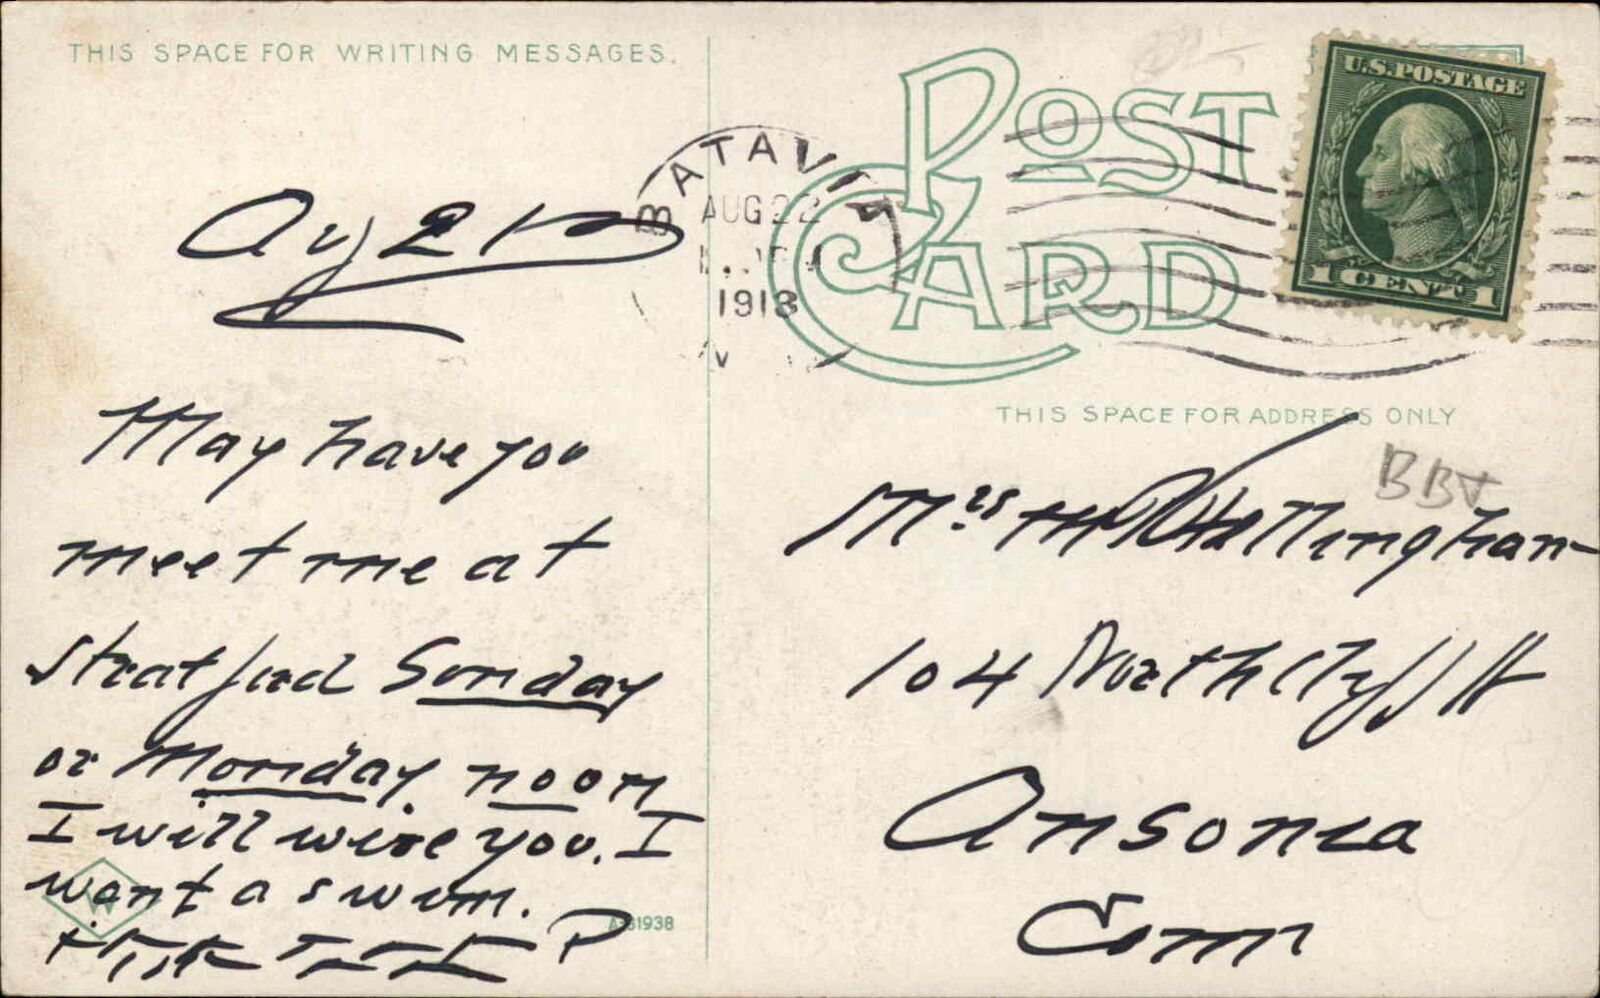 THIS SPACE FOR WRITING MESSAGES.
POST CARD
U.S. POSTAGE
1 CENT 1
BATAVIA
AUG 22
1913
N
Aug 21
May have you
meet me at
Stratford Sunday
or Monday noon
I will wire you. I
want a swim.
P
A-31938
THIS SPACE FOR ADDRESS ONLY
Mrs
104 North Cliff St
Ansonia
Conn